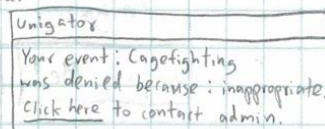 Unigator
Your event: Cagefighting
was denied because: inappropriate.
Click here to contact admin.